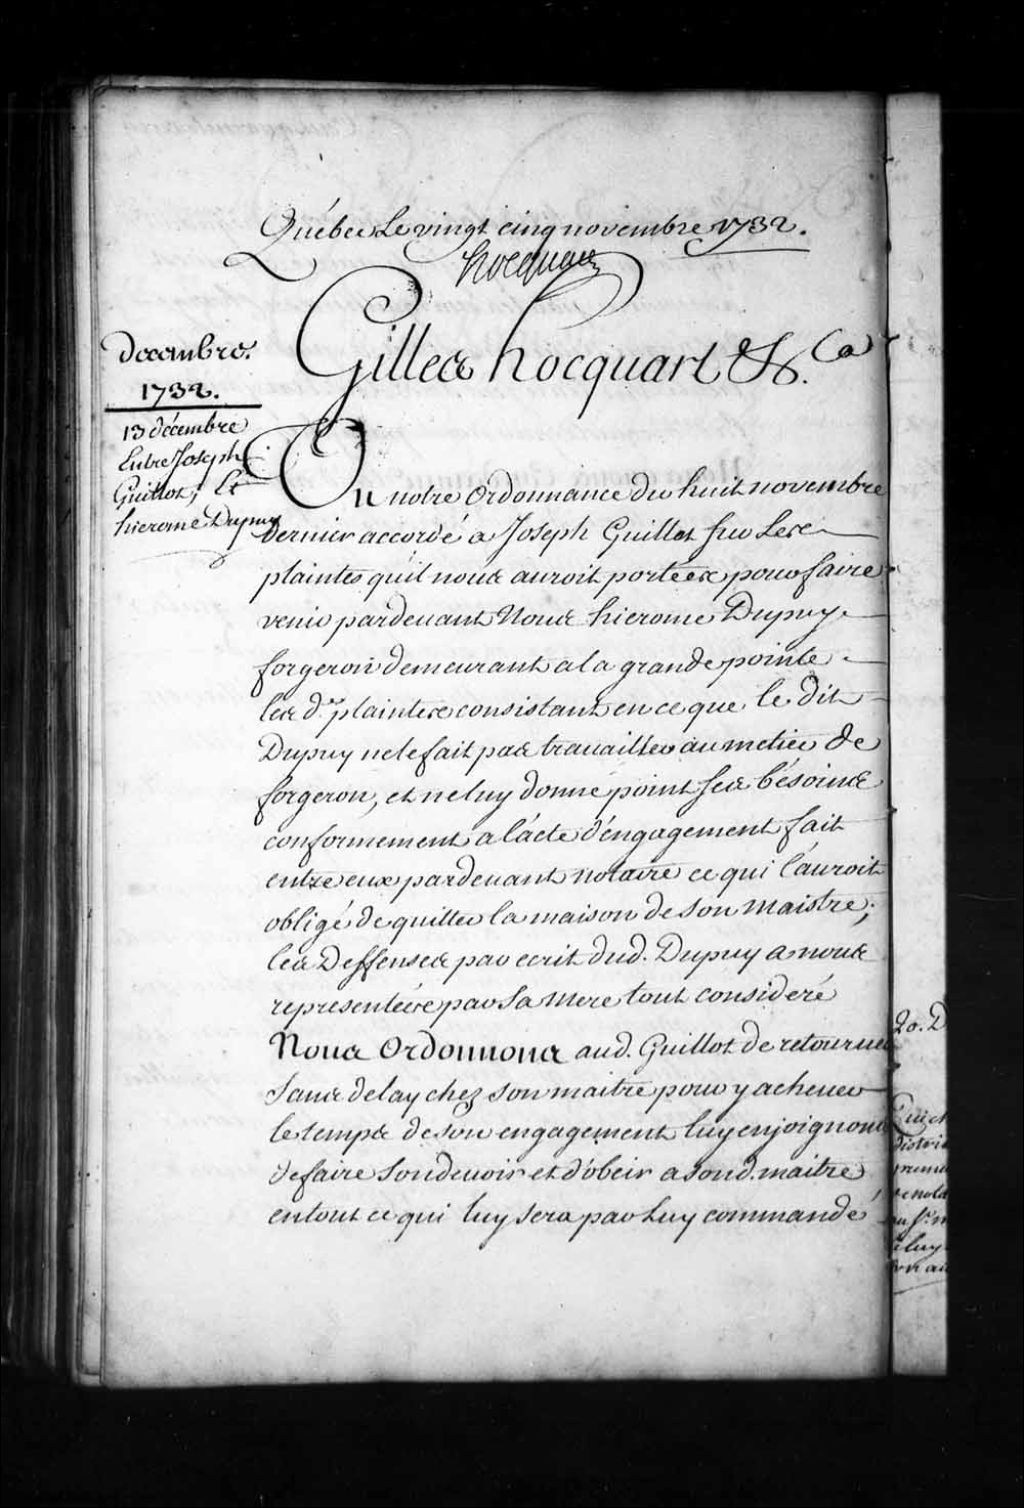 Québec Le vingt cinq novembre 1732.
hocquart
Gilles hocquart &c.ca
decembre.
1732.
13 décembre
Entre Joseph
Guillot, Et
hierome Dupuy
Vu notre Ordonnance du huit novembre
dernier accordé a Joseph Guillot sur Les
plaintes quil nous auroit portées pour faire
venir pardevant Nous hierome Dupuy
forgeron demeurant a la grande pointe
les d.es plaintes consistant en ce que le dit
Dupuy ne le fait pas travailler au metier de
forgeron, et ne luy donne point ses bésoins
conformement a lácte d'éngagement fait
entre eux pardevant notaire ce qui l'auroit
obligé de quitter la maison de son maistre;
les Deffenses par ecrit dud. Dupuy a nous
representées par sa mere tout consideré
Nous Ordonnons aud. Guillot de retourner
sans delay chez son maitre pour y achever
le temps de son engagement luy enjoignons
de faire son devoir et d'obeir a sond. maitre
en tout ce qui luy sera par Luy commandé
20. D